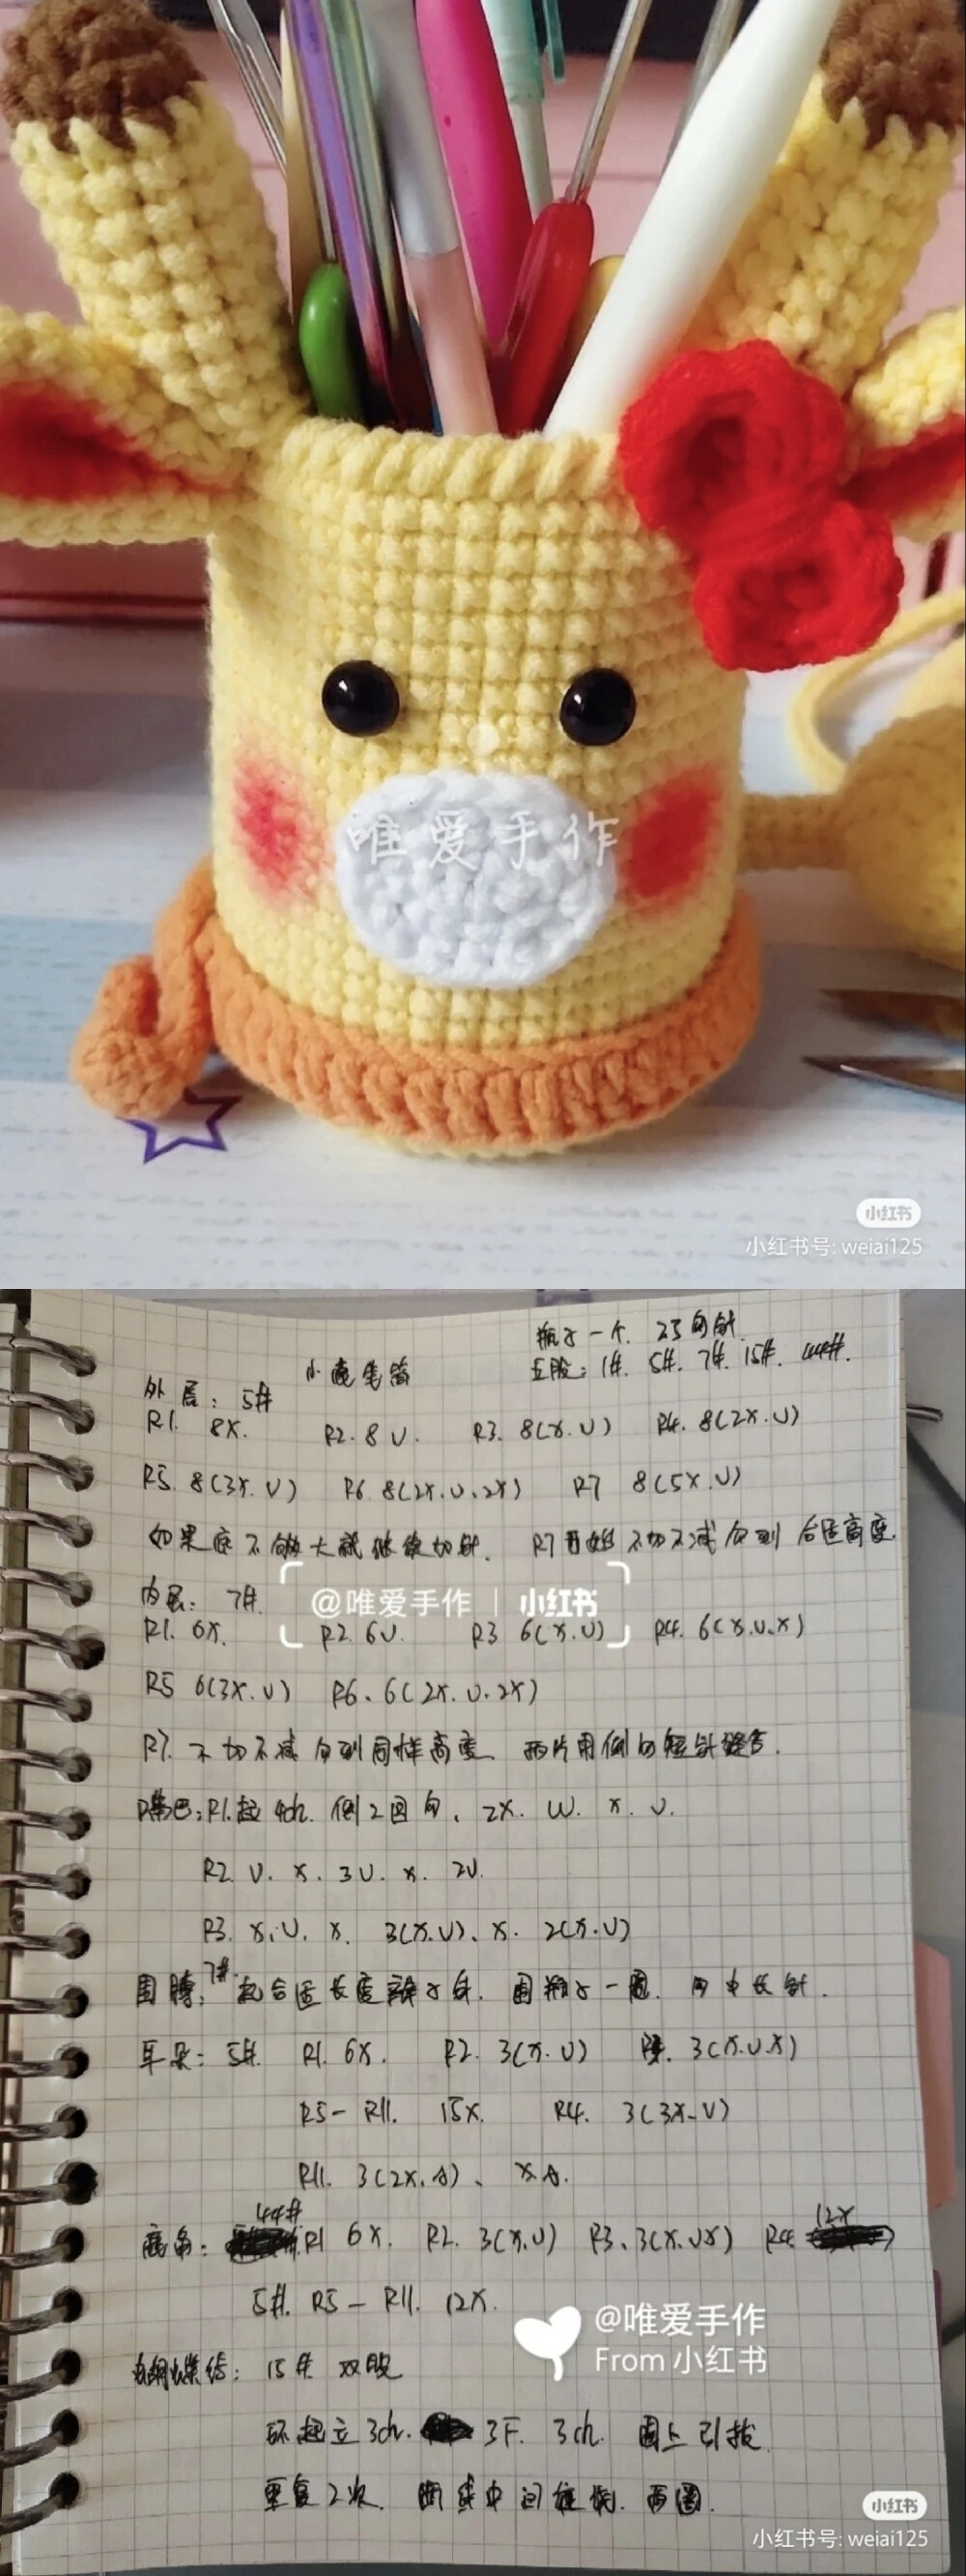 唯爱手作
小红书
小红书号: weiai125
瓶子一个. 2.5钩针
小鹿笔筒
五股: 1#. 5#. 7#. 15#. 44#.
外层: 5#
R1. 8X. R2. 8V. R3. 8(X.V) R4. 8(2X.V)
R5. 8(3X.V) R6. 8(2X.V.2X) R7 8(5X.V)
如果底不够大就继续加针. R7开始不加不减勾到合适高度.
内层: 7#.
@唯爱手作 | 小红书
R1. 6X. R2. 6V. R3 6(X.V) R4. 6(X.V.X)
R5 6(3X.V) R6. 6(2X.V.2X)
R7. 不加不减勾到同样高度. 两片用倒勾短针缝合.
嘴巴: R1. 起4ch. 倒2回勾. 2X. W. X. V.
R2. V. X. 3V. X. 2V.
R3. X.V. X. 3(X.V). X. 2(X.V)
围脖: 7#. 起合适长度辫子针. 围瓶子一圈. 勾中长针.
耳朵: 5#. R1. 6X. R2. 3(X.V) 3(X.V.X)
R5-R11. 15X. R4. 3(3X.V)
R11. 3(2X.A)、X.A.
44# 12X
鹿角: R1 6X. R2. 3(X.V) R3. 3(X.VX) R4.
5#. R5-R11. 12X.
@唯爱手作
From 小红书
蝴蝶结: 15# 双股
环起立3ch. 3F. 3ch. 圈上引拔
重复2次. 断线中间 两圈.
小红书
小红书号: weiai125